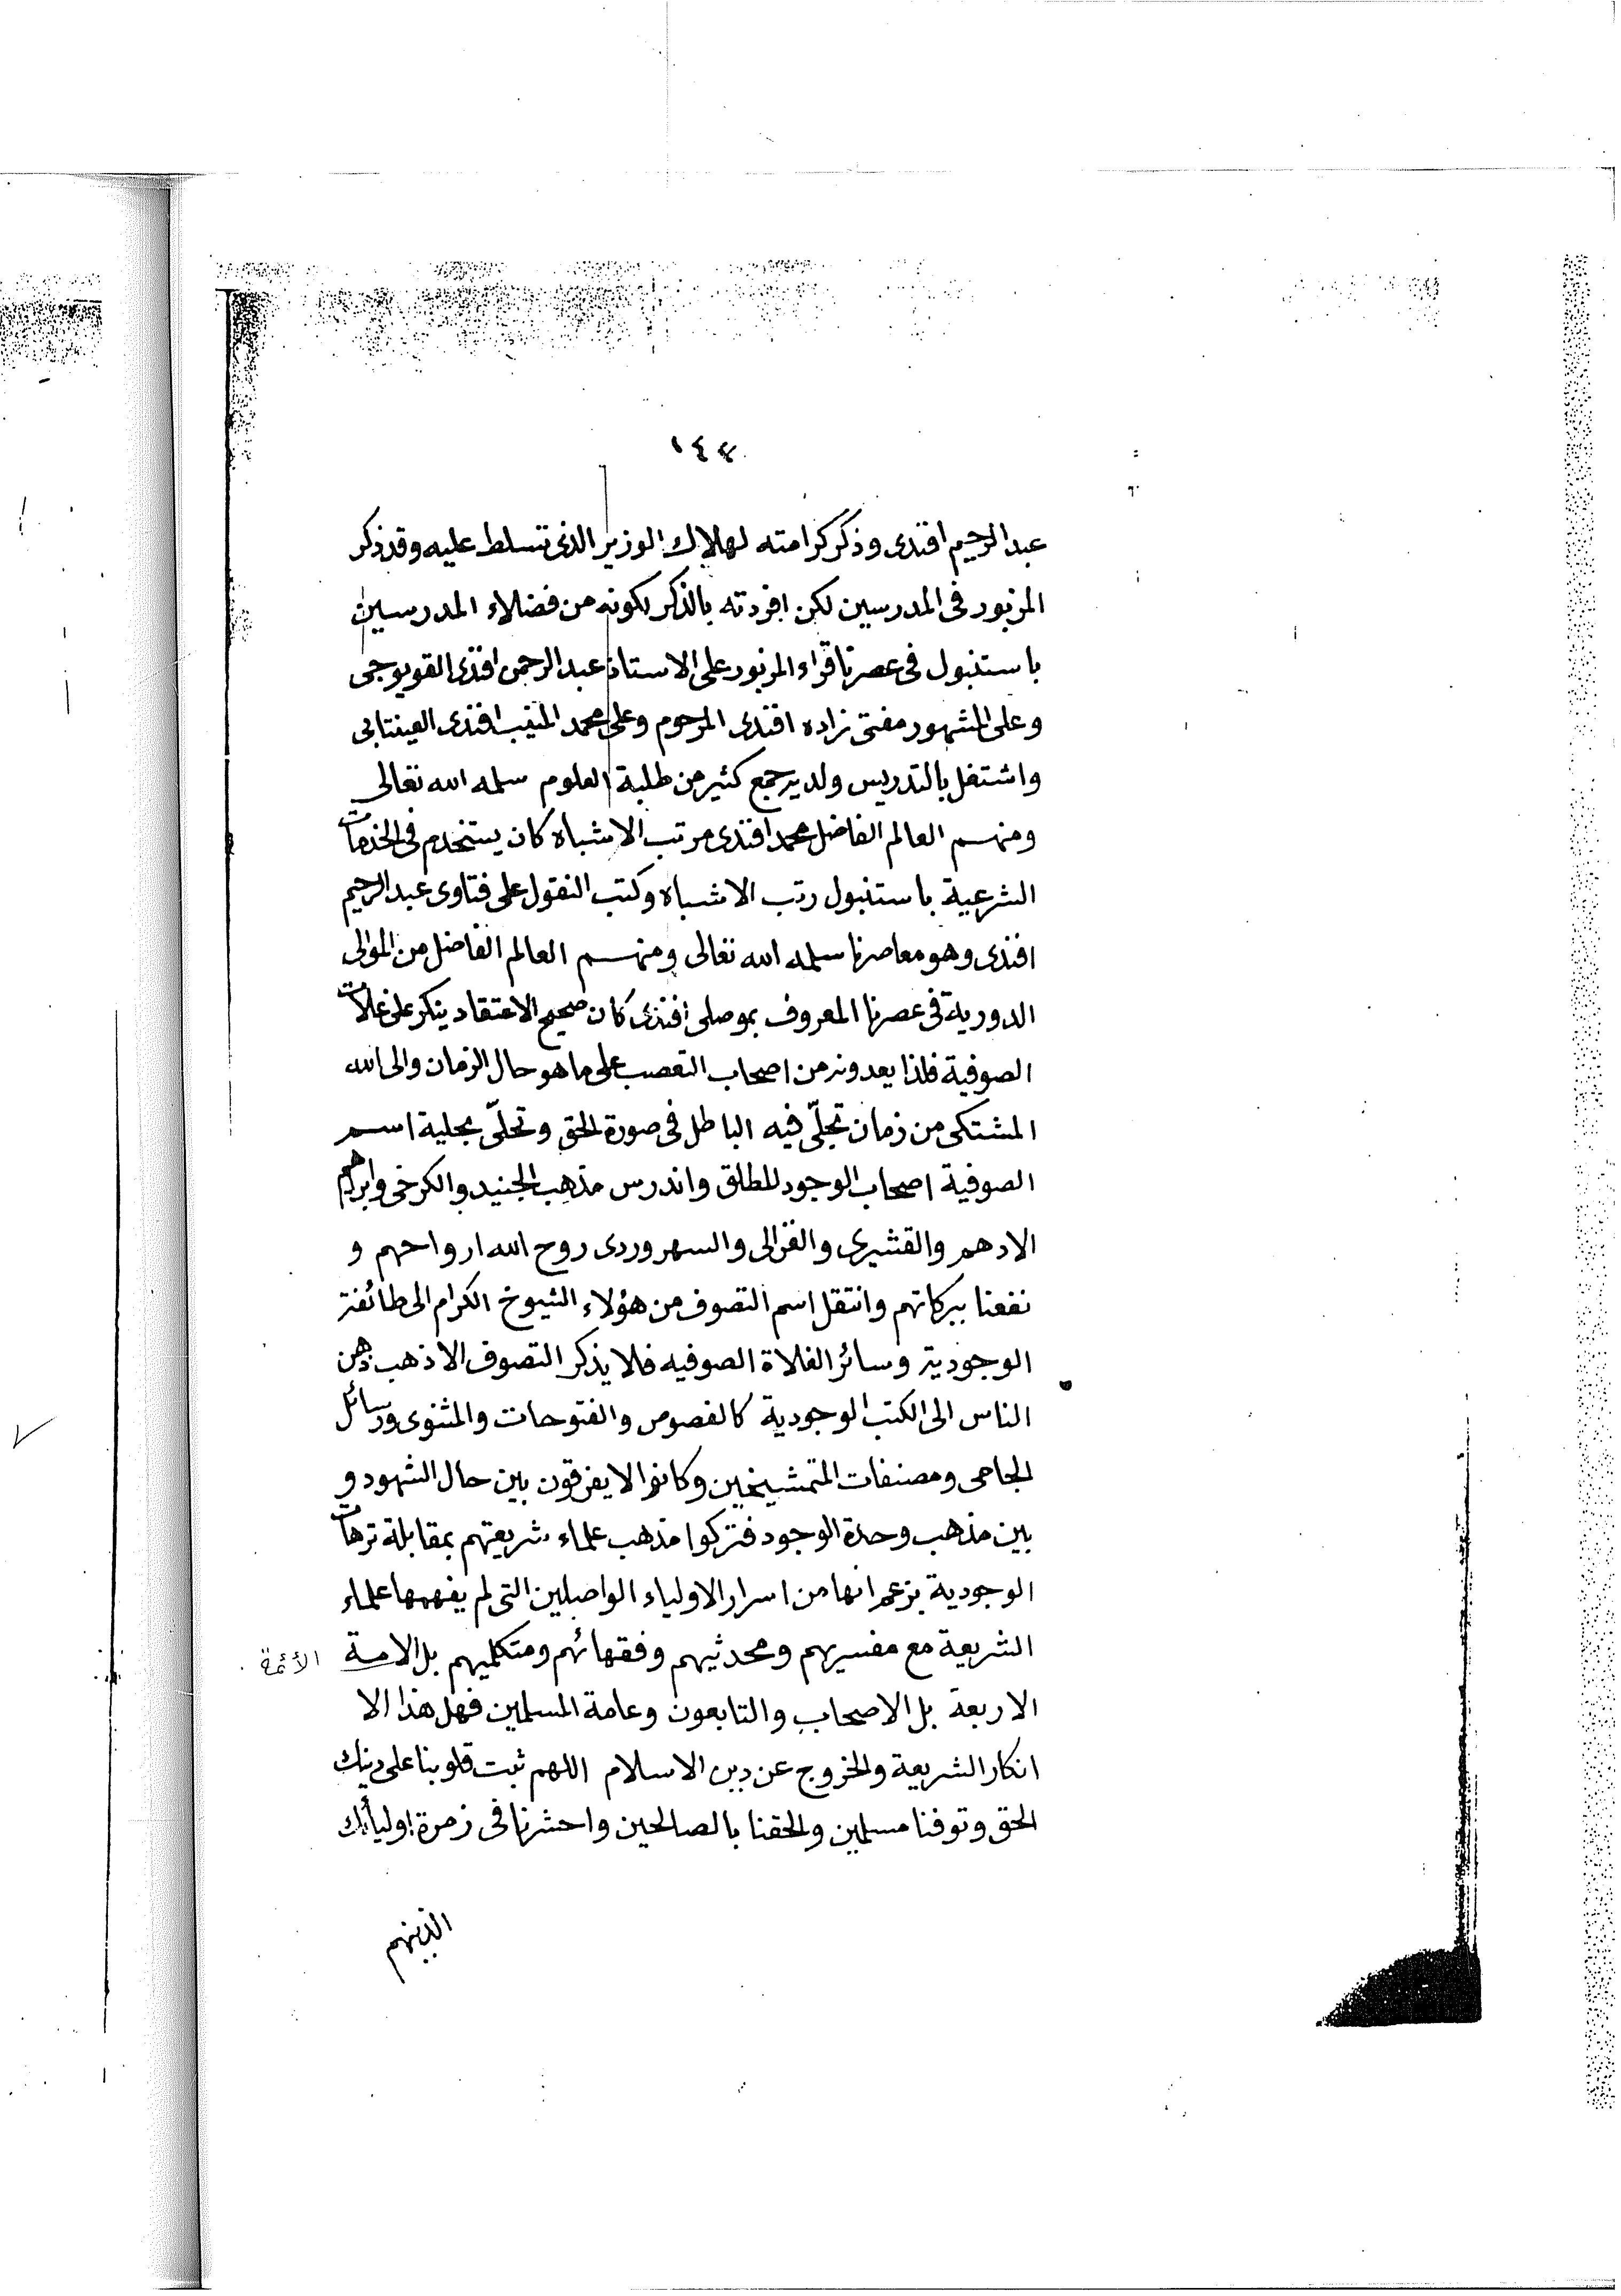 ١٤٤
عبد الرحيم افندى وذكر كرامته لهلاك الوزير الذى تسلط عليه وقد ذكر
المزبور فى المدرسين لكن افردته بالذكر لكونه من فضلاء المدرسين
باستنبول فى عصرنا قراء المزبور على الاستاذ عبد الرحمن افندى القويوجى
وعلى المشهور مفتى زاده افندى المرحوم وعلى محمد المنيب افندى العينتابى
واشتغل بالتدريس ولديه جمع كثير من طلبة العلوم سلمه الله تعالى
ومنهم العالم الفاضل محمد افندى مرتب الاشباه كان يستخدم فى الخدمات
الشرعية باستنبول رتب الاشباه وكتب النقول على فتاوى عبد الرحيم
افندى وهو معاصرنا سلمه الله تعالى ومنهم العالم الفاضل من الموالى
الدورية فى عصرنا المعروف بموصلى افندى كان صحيح الاعتقاد ينكر على غلات
الصوفية فلذا يعدونه من اصحاب التعصب على ما هو حال الزمان والى الله
المشتكى من زمان تجلّى فيه الباطل فى صورة الحق وتحلّى بحلية اسم
الصوفية اصحاب الوجود المطلق واندرس مذهب الجنيد والكرخى وابراهيم
الادهم والقشيرى والغزالى والسهروردى روح الله ارواحهم و
نفعنا ببركاتهم وانتقل اسم التصوف من هؤلاء الشيوخ الكرام الى طائفة
الوجودية وسائر الغلاة الصوفيه فلا يذكر التصوف الا ذهب ذهن
الناس الى الكتب الوجودية كالفصوص والفتوحات والمثنوى ورسائل
الجامى ومصنفات المتمشيخين وكانوا لا يفرقون بين حال الشهود و
بين مذهب وحدة الوجود فتركوا مذهب علماء شريعتهم بمقابلة ترهات
الوجودية بزعم انها من اسرار الاولياء الواصلين التى لم يفهمها علماء
الشريعة مع مفسريهم ومحدثيهم وفقهائهم ومتكلميهم بل الامة
الأئمة
الاربعة بل الاصحاب والتابعون وعامة المسلمين فهل هذا الا
انكار الشريعة والخروج عن دين الاسلام اللهم ثبت قلوبنا على دينك
الحق وتوفنا مسلمين والحقنا بالصالحين واحشرنا فى زمرة اوليائك
الذينهم